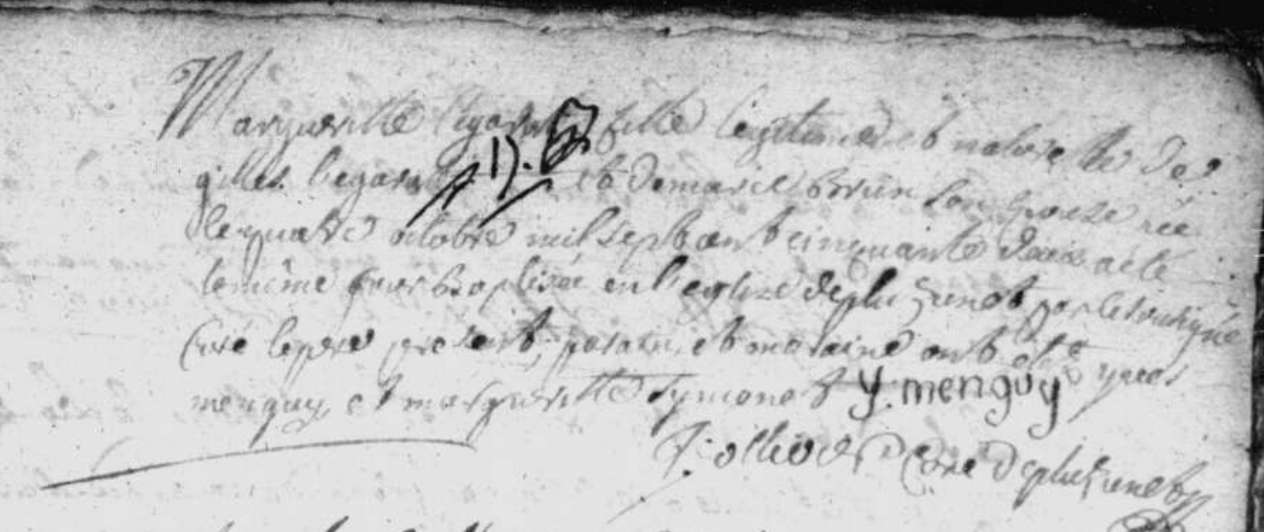 Marguerite Legarat fille legitime et naturelle de
gilles legarat et de marie brien son epouse née
le quatre octobre mil sept cent cinquante deux a été
le même jour baptisée en l'eglise de pluzunet par le soussigné
Curé le pere present, parain et maraine ont eté yves
menguy, et marguerite Symonet y. menguy
ollivier Curé de pluzunet